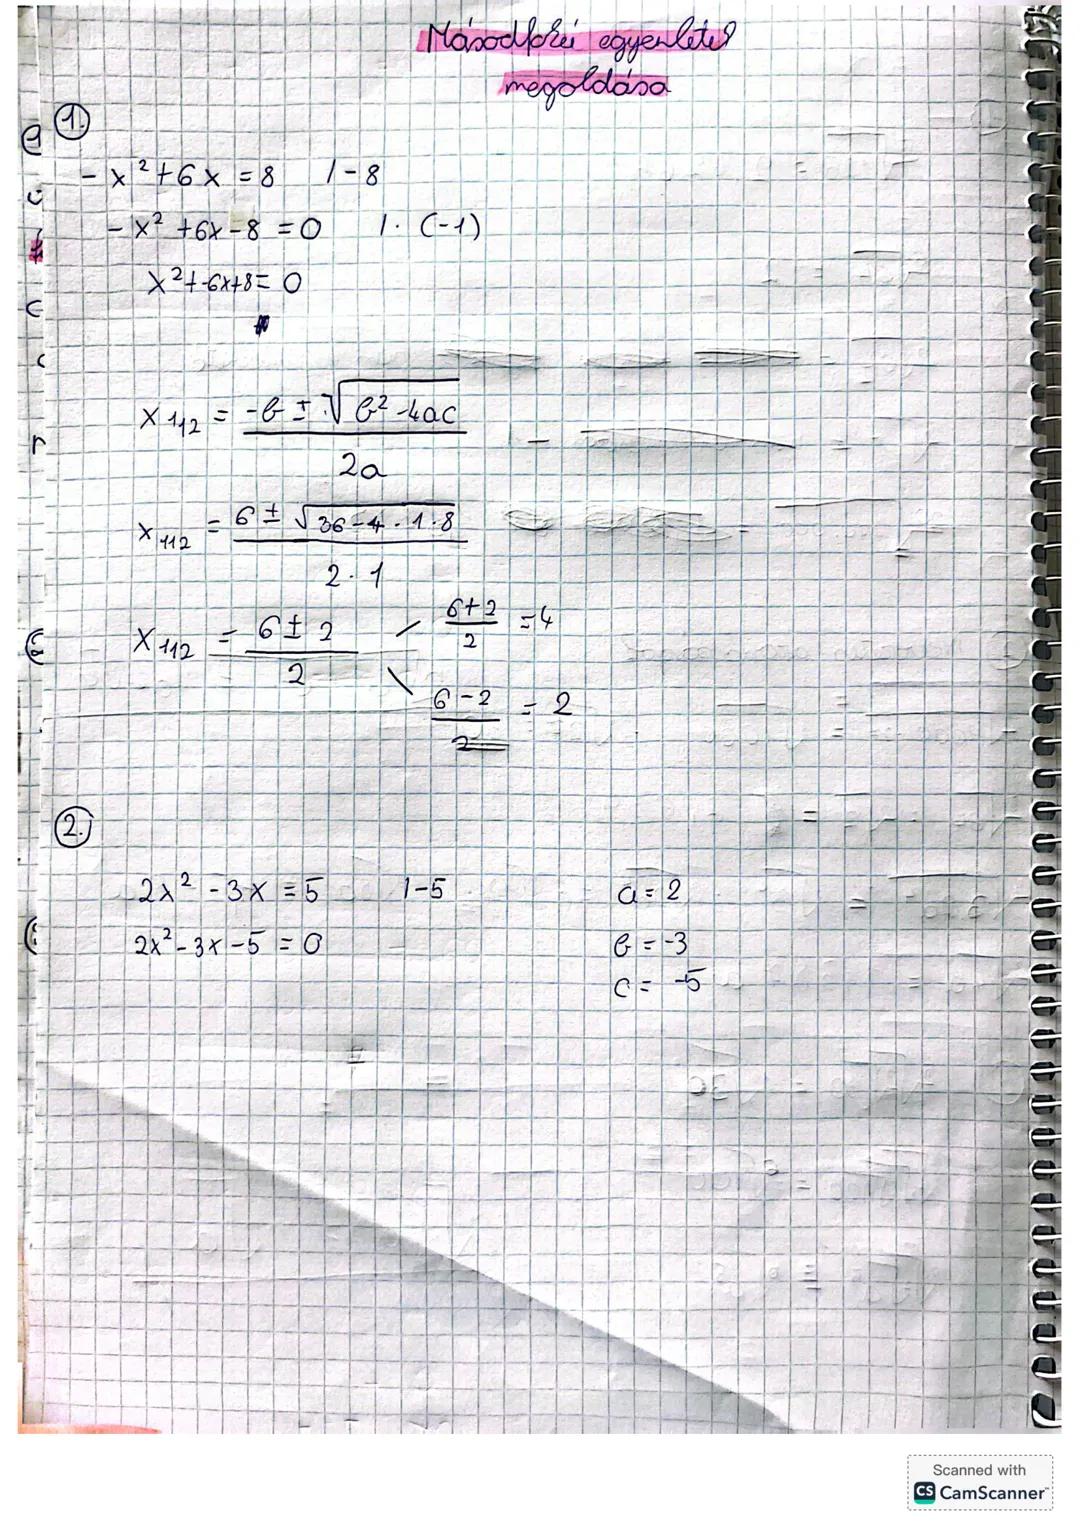 Másodfokú egyenletek
megoldása
1.
- x² + 6x = 8 / - 8
- x² + 6x - 8 = 0 / · (-1)
x² + -6x + 8 = 0
x₁,₂ = (-b ± √(b² - 4ac)) / 2a
x₁,₂ = (6 ± √(36 - 4 · 1 · 8)) / 2 · 1
x₁,₂ = (6 ± 2) / 2
(6 + 2) / 2 = 4
(6 - 2) / 2 = 2
2.
2x² - 3x = 5 / - 5 a = 2
2x² - 3x - 5 = 0 b = -3
c = -5
Scanned with
CS CamScanner